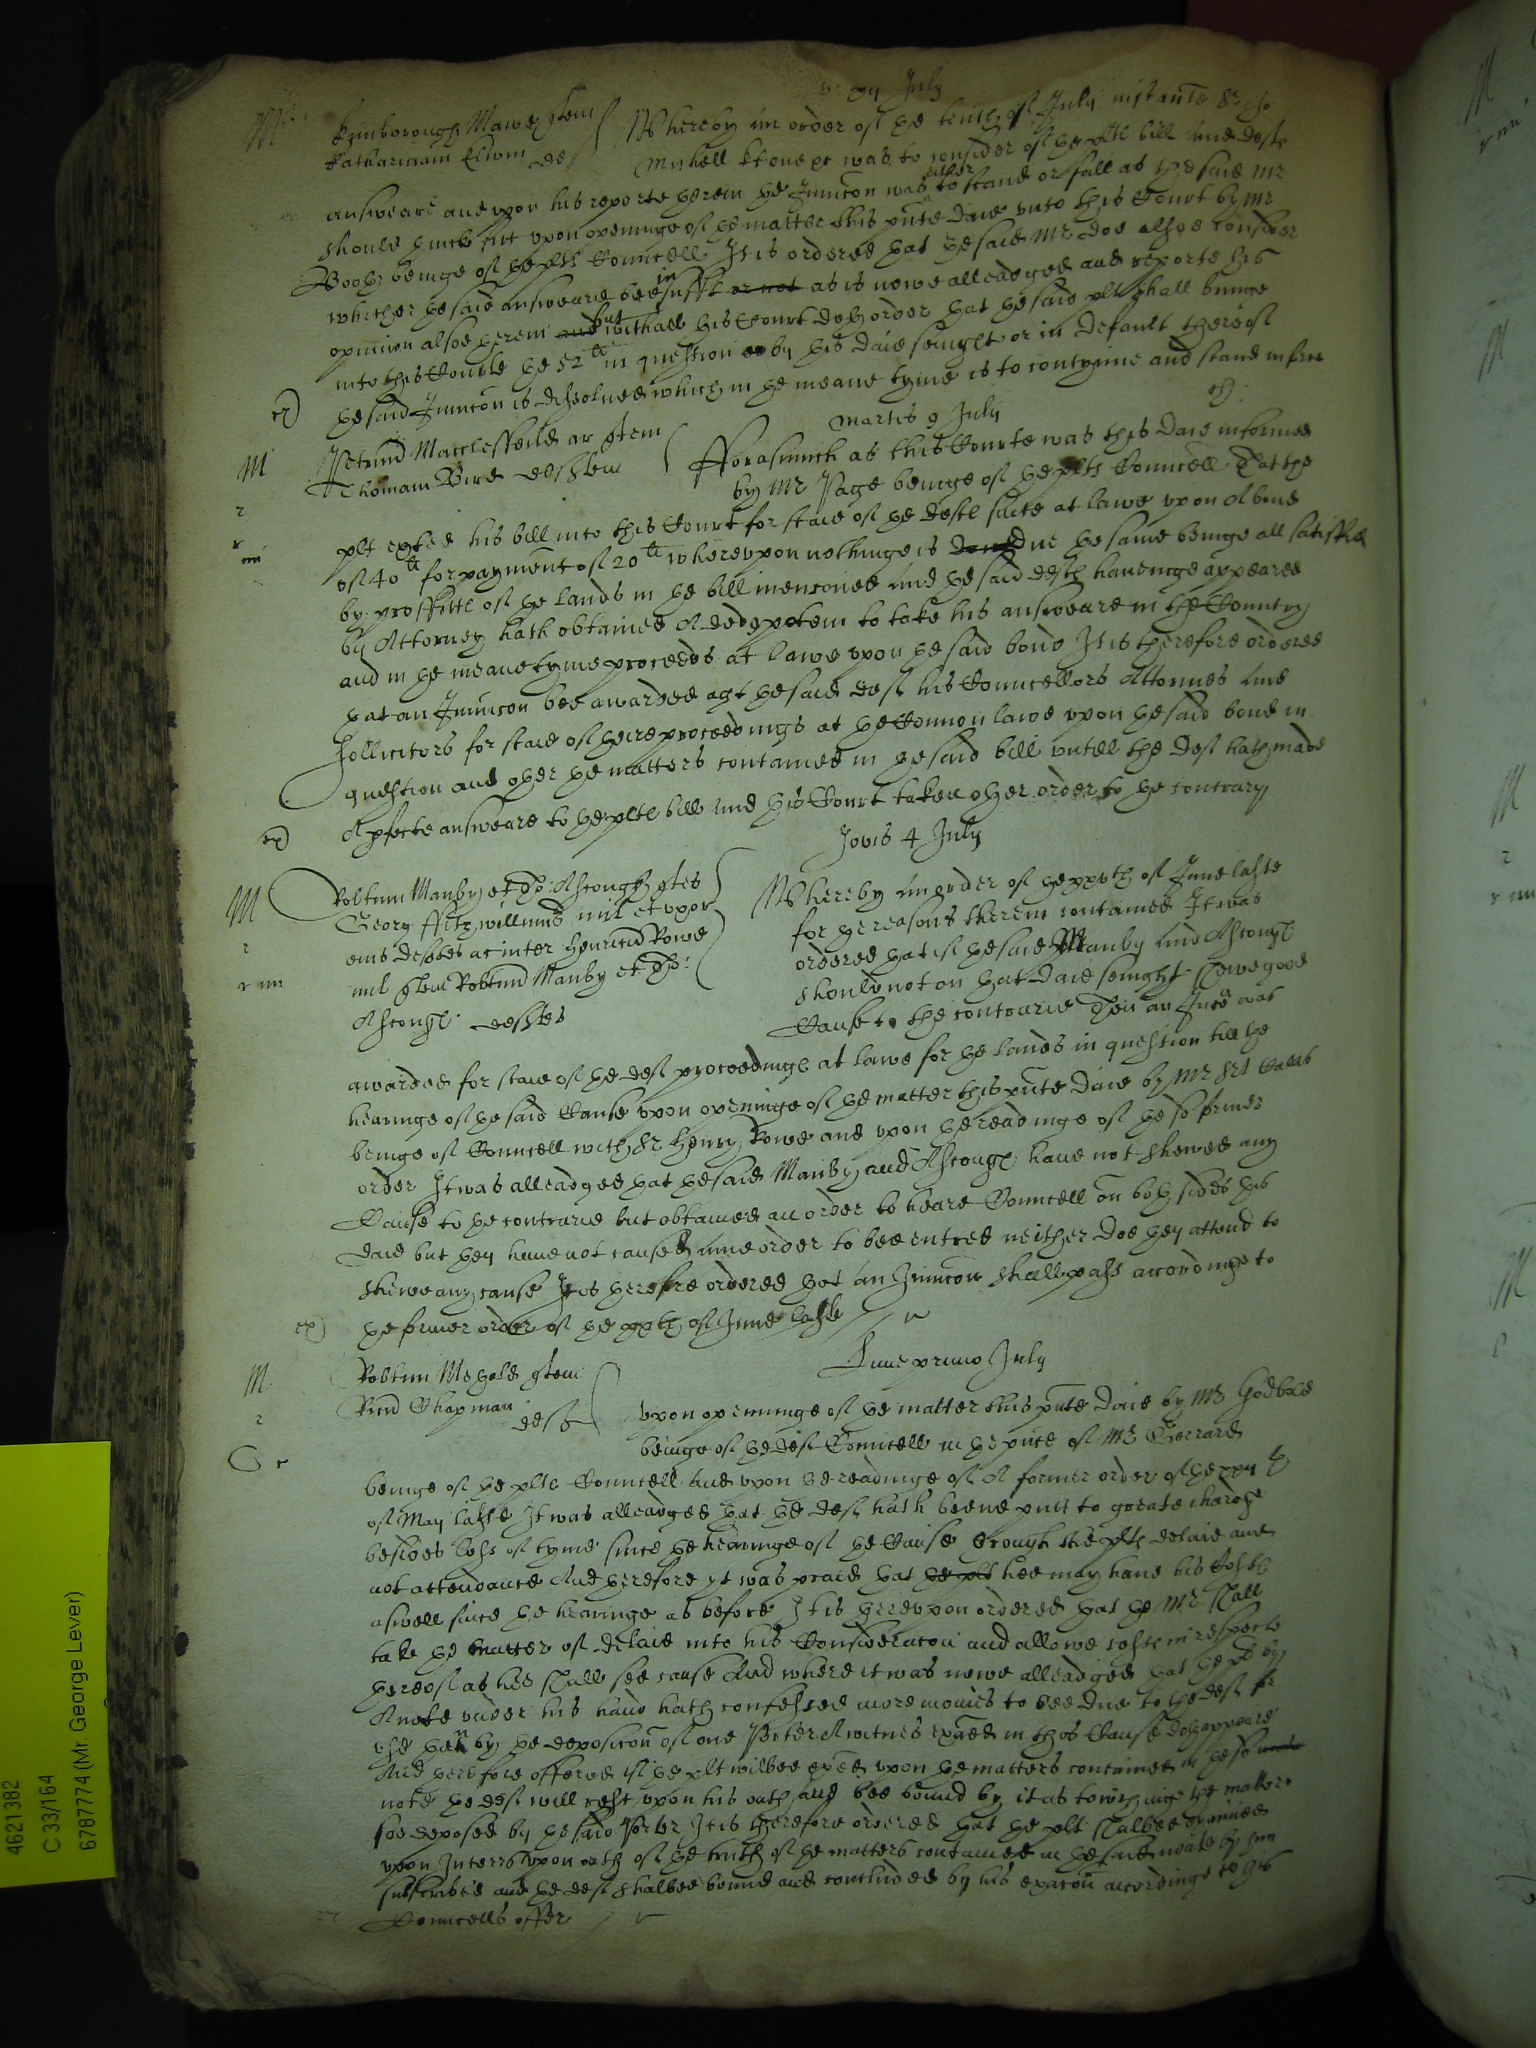 July
M Kymborough Mawe quer Whereby an order of the tenth of July instante Sr
Katharinam Elwin def Michell was to consider of the plts bill and defts
answeare and upon his reporte therein the Iniuncon was either to stand or fall as the said Mr
should thinke fitt upon openinge of the matter this pnte daie unto this Court by Mr
beinge of the plts Councell It is ordered that the said Mr doe alsoe consider
whether the said answeare bee in suffit or not as is nowe alleadged and reporte his
opinion alsoe therein and but withall this Court doth order that the said plt shall bringe
into this Courte the 52li in question by this daie seinight or in default thereof
the said Iniuncon is dissolued which in the meane tyme is to contynue and stand in force
Martis 9 July
M Petrum Macclesfeild ar quer Fforasmuch as this Courte was this daie informed
Thomam Bird def by Mr Page beinge of the plts Councell That the
plt exhited his bill into this Court for staie of the defts suite at lawe upon A bond
of 40li for payment of 20li whereupon nothinge is due the same beinge all satisfied
by proffitts of the lands in the bill menconed And the said deft hauinge appeared
by Attorney hath obtained A ded potem to take his answeare in the Countrey
and in the meane tyme proceeds at lawe upon the said bond It is therefore ordered
that an Iniuncon bee awarded agt the said deft his Councellors Attornies and
sollicitors for staie of their proceedings at the Comon lawe upon the said bond in
question and other the matters contained in the said bill untill the deft hath made
A pfecte answeare to the plts bill and this Court taken other order to the contrary
Jovis 4 July
M Robtum Manby et Tho: Ascough quer Whereby an order of the xxvth of June laste
Georg ffitzwilliams mil et uxor for the reasons therein contained It was
eius deftes ac inter Henricum Rowe ordered that if the said Manby and Ascough
mil quer Robtum Manby et Tho: should not on that daie seinight shewe good
Ascough deftes Cause to the contrarie Then an Iniunc was
awarded for staie of the deft proceedings at lawe for the lands in question till the
hearinge of the said Cause upon openinge of the matter this pnte daie by Mr
beinge of Councell with Sr Henry Rowe and upon the readinge of the sd former
order It was alleadged that the said Manby and Ascough haue not shewed any
Cause to the contrarie but obtained an order to heare Councell on both sides this
daie but they haue not caused anie order to bee entred neither doe they attend to
shewe any cause It is therefore ordered that an Iniuncon shall passe accordinge to
the former order of the xxvth of June laste
Lune primo July
M Robtum quer
Ricum Chapman deft upon openinge of the matter this pnte daie by Mr Godbold
beinge of the deft Councell in the pnce of Mr Gerrard
beinge of the plts Councell And upon the readinge of A former order of the
of May laste It was alleadged that the deft hath beene putt to greate chardge
besides losse of tyme since the hearinge of the Cause through the plts delaie and
not attendance And therefore yt was praied that the plt hee may haue his Costs
aswell since the hearinge as before It is thereupon ordered that the Mr shall
take the matter of delaie into his Consideracon and allowe costs in respecte
thereof as hee shall see cause And where it was nowe alleadged that the plt by
A note under his hand hath confessed more monies to bee due to the deft
by the deposicon of one Porter A witnes exaied in this Cause doth appeare
And therefore offered if the plt wilbee exaied upon the matters contained in the sd
note the deft will rest upon his oath and bee bound by it as towchinge the matter
soe deposed by the said Porter It is therefore ordered that the plt shalbee examined
upon Interrs upon oath of the truth of the matters contained in the said note by him
subscribed and the deft shalbee bound and concluded by his exacon accordinge to his
Councells offer
4621382
C 33/164
6787774 (Mr. George Lever)